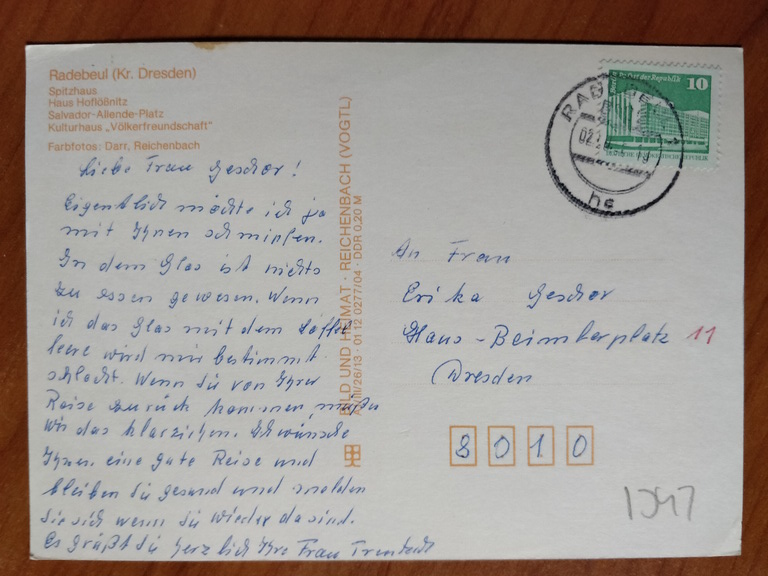 Radebeul (Kr. Dresden)
Spitzhaus
Haus Hoflößnitz
Salvador-Allende-Platz
Kulturhaus „Völkerfreundschaft"
Farbfotos: Darr, Reichenbach
Liebe Frau Geschor!
Eigentlich möchte ich ja
mit Ihnen schmipfen.
In dem Glas ist nichts
zu essen gewesen. Wenn
ich das Glas mit dem Löffel
leere wird mir bestimmt
schlecht. Wenn Sie von Ihrer
Reise zurück kommen, müßen
wir das klarziehen. Ich wünsche
Ihnen eine gute Reise und
bleiben Sie gesund und melden
Sie sich wenn Sie wieder da sind.
Es grüßt Sie herzlich Ihre Frau
BILD UND HEIMAT · REICHENBACH (VOGTL)
III/26/13 · 01 12 0277/04 · DDR 0,20 M
10
An Frau
Erika Geschor
Hans-Beimlerplatz 11
Dresden
8010